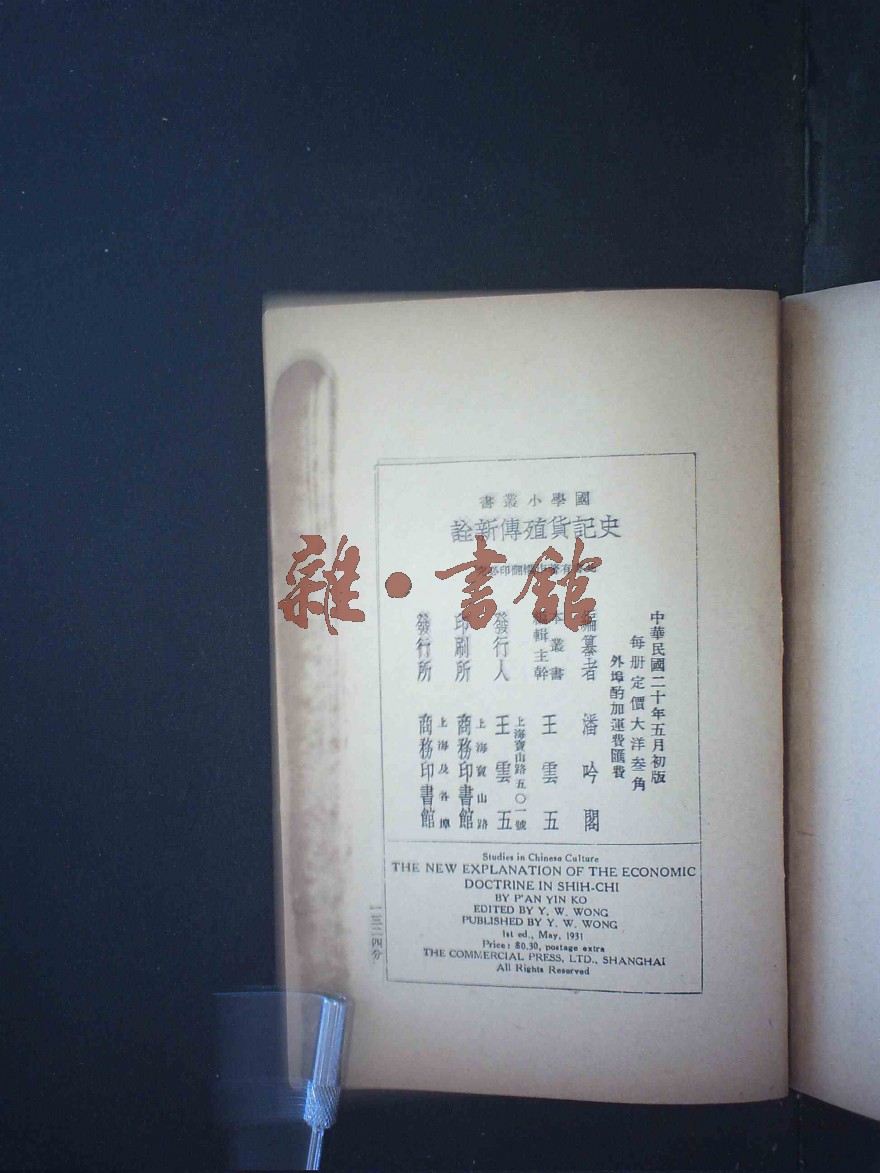 國學小叢書
史記貨殖傳新詮
中華民國二十年五月初版
每册定價大洋叁角
外埠酌加運費匯費
編纂者 潘吟閣
本叢書
編輯主幹 王雲五
發行人 王雲五
上海寶山路五〇一號
印刷所 商務印書館
上海寶山路
發行所 商務印書館
上海及各埠
Studies in Chinese Culture
THE NEW EXPLANATION OF THE ECONOMIC
DOCTRINE IN SHIH-CHI
BY P'AN YIN KO
EDITED BY Y. W. WONG
PUBLISHED BY Y. W. WONG
1st ed., May, 1931
Price: $0.30, postage extra
THE COMMERCIAL PRESS, LTD., SHANGHAI
All Rights Reserved
雜·書館